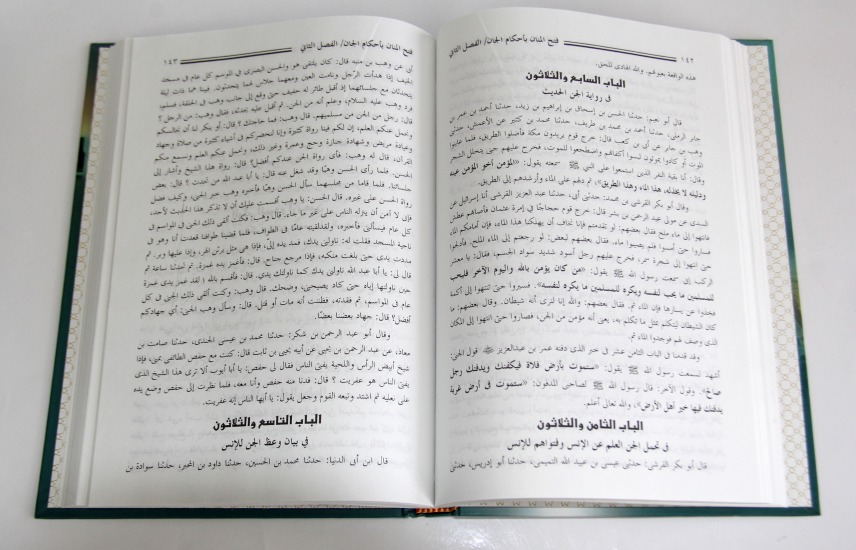 ١٤٢ فتح المنان بأحكام الجان/ الفصل الثاني
هذه الواقعة بعيونهم. والله الهادي للحق.
الباب السابع والثلاثون
في رواية الجن الحديث
قال أبو نعيم: حدثنا الحسن بن إسحاق بن إبراهيم بن زيد، حدثنا أحمد بن عمر بن
جابر الرملي، حدثنا أحمد بن محمد بن طريف، حدثنا محمد بن كثير عن الأعمش، حدثني
وهب بن جابر عن أبي بن كعب قال: خرج قوم يريدون مكة فأضلوا الطريق، فلما عاينوا
الموت أو كادوا يموتون لبسوا أكفانهم واضطجعوا للموت، فخرج عليهم جني يتخلل الشجر
وقال: أنا بقية النفر الذين استمعوا على النبي ﷺ سمعته يقول: «المؤمن أخو المؤمن عينه
ودليله لا يخذله، هذا الماء وهذا الطريق»، ثم دلهم على الماء وأرشدهم إلى الطريق.
وقال أبو بكر القرشي بن محمد: حدثني أبي، حدثنا عبد العزيز القرشي أنا إسرائيل عن
السدي عن مولى عبد الرحمن بن بشر قال: خرج قوم حجاجًا في إمرة عثمان فأصابهم عطش
فانتهوا إلى ماء ملح فقال بعضهم: لو تقدمتم فإنا نخاف أن يهلكنا هذا الماء، فإن أمامكم الماء
فساروا حتى أمسوا فلم يصيبوا ماء. فقال بعضهم لبعض: لو رجعتم إلى الماء الملح. فأدلجوا
حتى انتهوا إلى شجرة سمر، فخرج عليهم رجل أسود شديد سواد الجسم، فقال: يا معشر
الركب إني سمعت رسول الله ﷺ يقول: «من كان يؤمن بالله واليوم الآخر فليحب
للمسلمين ما يحب لنفسه ويكره للمسلمين ما يكره لنفسه». فسيروا حتى تنتهوا إلى أكمة
فخذوا عن يسارها فإن الماء ثم. فقال بعضهم: والله إنا لنرى أنه شيطان. وقال بعضهم: ما
كان الشيطان ليتكلم بمثل ما تكلم به، يعني أنه مؤمن من الجن، فصاروا حتى انتهوا إلى المكان
الذي وصف لهم فوجدوا الماء ثم.
وقد قدمنا في الباب الثامن عشر في خبر الذي دفنه عمر بن عبدالعزيز قول الجني:
أشهد لسمعت رسول الله ﷺ يقول: «ستموت بأرض فلاة فيكفنك ويدفنك رجل
صالح». وقول الآخر: قال رسول الله ﷺ لصاحبي المدفون: «ستموت في أرض غربة
يدفنك فيها خير أهل الأرض»، والله تعالى أعلم.
الباب الثامن والثلاثون
في تحمل الجن العلم عن الإنس وفتواهم للإنس
قال أبو بكر القرشي: حدثني عيسى بن عبيد الله التميمي، حدثنا أبو إدريس، حدثني
فتح المنان بأحكام الجان/ الفصل الثاني ١٤٣
أبي عن وهب بن منبه قال: كان يلتقي هو والحسن البصري في الموسم كل عام في مسجد
الخيف إذا هدأت الرِّجل ونامت العين ومعهما جلاس لهما يتحدثون. فبينا هما ذات ليلة
يتحدثان مع جلسائهما إذ أقبل طائر له حفيف حتى وقع إلى جانب وهب في الحلقة، فسلم
فرد وهب عليه السلام، وعلم أنه من الجن. ثم أقبل عليه يحدثه، فقال وهب: من الرجل؟
قال: رجل من الجن من مسلميهم. قال وهب: فما حاجتك؟ قال: أو ينكر لنا أن نجالسكم
ونحمل عنكم العلم، إن لكم فينا رواة كثيرة وإنا لنحضركم في أشياء كثيرة من صلاة وجهاد
وعيادة مريض وشهادة جنازة وحج وعمرة وغير ذلك، ونحمل عنكم العلم ونسمع منكم
القرآن، قال له وهب: فأي رواة الجن عندكم أفضل؟ قال: رواة هذا الشيخ وأشار إلى
الحسن. فلما رأى الحسن وهبًا وقد شغل عنه قال: يا أبا عبد الله من تحدث؟ قال: بعض
جلسائنا. فلما قاما من مجلسهما سأل الحسن وهبًا فأخبره وهب خبر الجني، وكيف فضل
رواة الحسن على غيره. قال الحسن: يا وهب أقسمت عليك أن لا تذكر هذا الحديث لأحد،
فإني لا آمن أن ينزله الناس على غير ما جاء. قال وهب: فكنت ألقى ذلك الجني في المواسم في
كل عام فيسألني فأخبره، ولقد لقيته عامًا في الطواف، فلما قضينا طوافنا قعدت أنا وهو في
ناحية المسجد فقلت له: ناولني يدك. فمد يده إليَّ، فإذا هي مثل برثن الهر، وإذا عليها وبر. ثم
مددت يدي حتى بلغت منكبه، فإذا مرجع جناح. قال: فأغمز يده غمزة. ثم تحدثنا ساعة ثم
قال لي: يا أبا عبد الله ناولني يدك كما ناولتك يدي. قال: فأقسم بالله لقد غمز يدي غمزة
حين ناولتها إياه حتى كاد يصيحني، وضحك. قال وهب: وكنت ألقى ذلك الجني في كل
عام في المواسم، ثم فقدته، فظننت أنه مات أو قتل. قال: وسأل وهب الجني: أي جهادكم
أفضل؟ قال: جهاد بعضنا بعضًا.
وقال أبو عبد الرحمن بن شكر: حدثنا محمد بن عيسى الجندي، حدثنا صامت بن
معاذ، عن عبد الرحمن بن يحيى عن أبيه يحيى بن ثابت قال: كنت مع حفص الطائفي بمنى، فإذا
شيخ أبيض الرأس واللحية يفتي الناس فقال لي حفص: يا أبا أيوب ألا ترى هذا الشيخ الذي
يفتي الناس هو عفريت؟ قال: فدنا منه حفص وأنا معه، فلما نظرت إلى حفص وضع يده
على نعليه ثم اشتد وتبعه القوم وجعل يقول: يا أيها الناس إنه عفريت.
الباب التاسع والثلاثون
في بيان وعظ الجن للإنس
قال ابن أبي الدنيا: حدثنا محمد بن الحسين، حدثنا داود بن المحبر، حدثنا سوادة بن